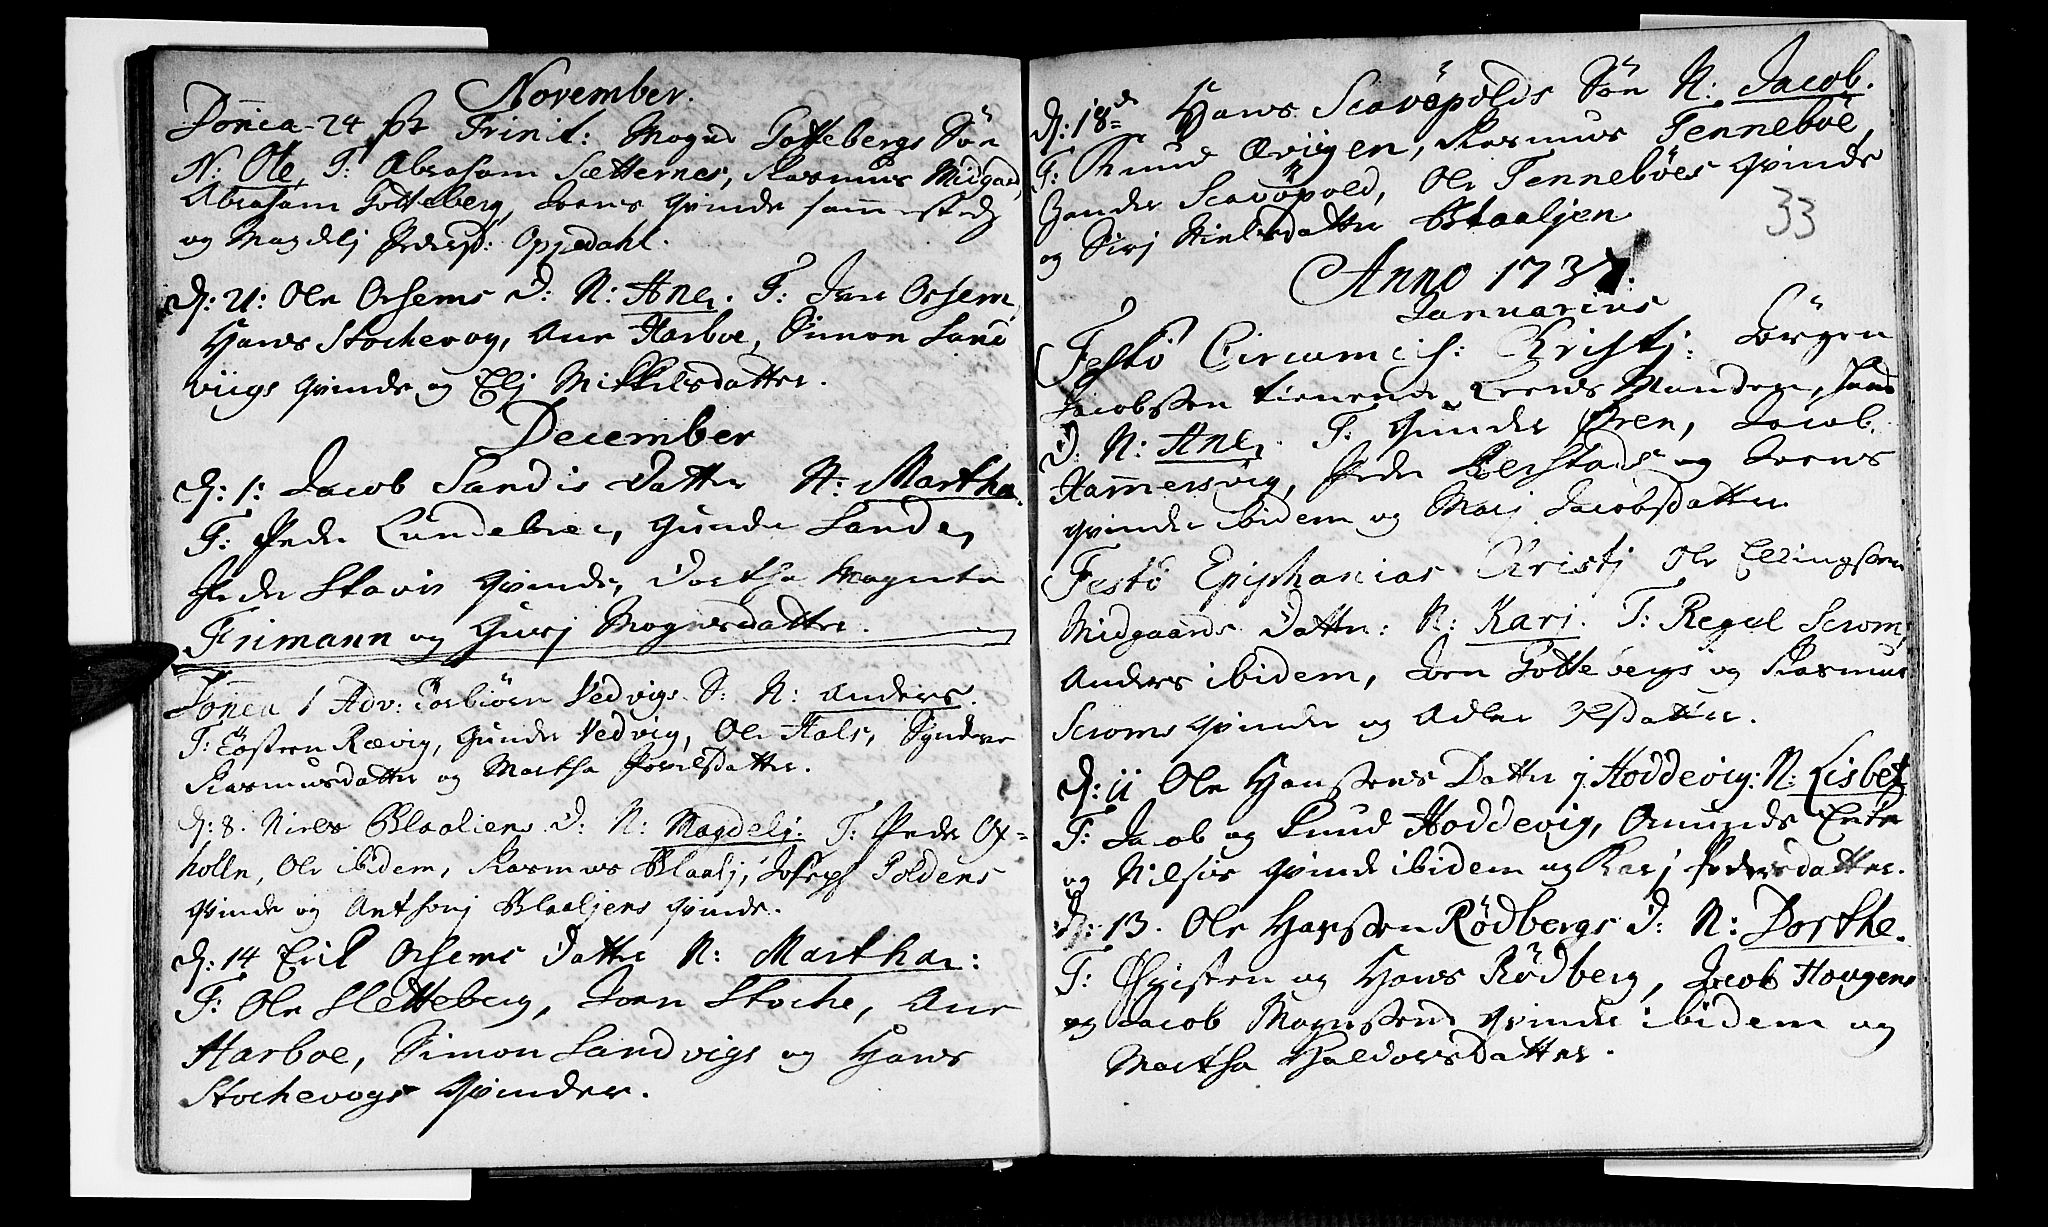 November.
Domca 24 p Trinit: Mogns Gotteberg Søn
N: Ole, F: Abraham Setternes, Rasmus Midgaard
Abraham Gotteberg, Joens Qvinde samesteds
og Magdelj Peders: Oppedahl.
D: 21: Ole Orsems D: N: Ane. F: Iver Orsem
Hans Stochevog, Ane Harboe, Simon Sand
viigs Qvinde og Elj Mikkelsdatter.
December
D: 1: Jacob Sandis Datter N: Martha.
F: Peder Lundebre, Gunder Sande,
Peder Stavis Qvinde, Dorthe Magreta
Frimann og Gurj Mognsdatter.
Domca 1 Adv: Torbiörn Vedvigs S: N: Anders.
F: Tosten Rævig, Gunder Vedvig, Ole Hals, Synneve
Rasmusdatter og Martha Povelsdatter.
D: 8. Niels Blaaliens D: N: Magdelj. F: Peder Ox-
holm, Ole ibidem, Rasmus Blaalj, Joseph Goldens
Qvinde og Anthonj Blaaljens Qvinde.
D: 14 Erik Orsems Datter N: Martha:
F: Ole Sletteberg, Joen Stoche, Ane
Harboe, Simon Sandvigs og Hans
Stochevogs Qvinder.
D: 18de Hans Scavöpolds Søn N: Jacob.
F: Knud Ervigen, Rasmus Tenneböe,
Zander Scavöpold, Ole Tenneböes Qvinde
og Sirj Nielsdatter Blaaljen
33
Anno 1737.
Januarius
Festo Circumcis: Christj: Jörgen
Jacobssen tienende Leens Manden, hans
D: N: Ane. F: Gunder Øren, Jacob
Hammersvig, Peder Berstads og Joens
Qvinder ibidem og Marj Jacobsdatter
Festo Epiphanias Christj Ole Ellingsøn
Midgaards Datter: N: Karj. F: Regel Scrom,
Anders ibidem, Joen Gottebergs og Rasmus
Scroms Qvinder og Adler Olsdatter.
D: 11 Ole Hanssens Datter j Hoddevig: N: Lisbet
F: Jacob og Knud Hoddevig, Omunds Enke
og Nilsis Qvinde ibidem og Karj Pedersdatter.
D: 13. Ole Hanssen Rödbergs D: N: Dorthe.
F: Østen og Hans Rödberg, Jacob Hougens
og Jacob Mognssens Qvinde ibidem og
Martha Haldorsdatter.